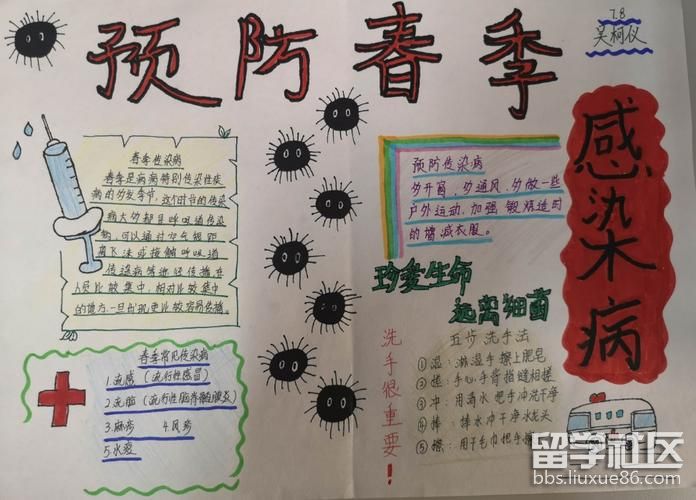 预防春季
感染病
7.8
吴柯仪
春季传染病
春季是病菌特别传染性疾
病的多发季节,这个时节的传染
病大多都是呼吸道传染
病,可以通过空气短距
离飞沫或接触呼吸道
传播
人员比较集中,相对比较集中
的地方,一旦出现更比较容易传播。
预防传染病
多开窗、多通风、多做一些
户外运动,加强锻炼适时
的增减衣服。
珍爱生命
远离细菌
春季常见传染病
1.流感(流行性感冒)
2.流脑(流行性脑脊髓膜炎)
3.麻疹 4.风疹
5.水痘
洗手很重要!
五步洗手法
①湿:淋湿手擦上肥皂
②搓:手心手背指缝相搓
③冲:用清水把手冲洗干净
④捧:捧水冲干净水龙头
⑤擦:用干毛巾把手擦
留学社区
bbs.liuxue86.com